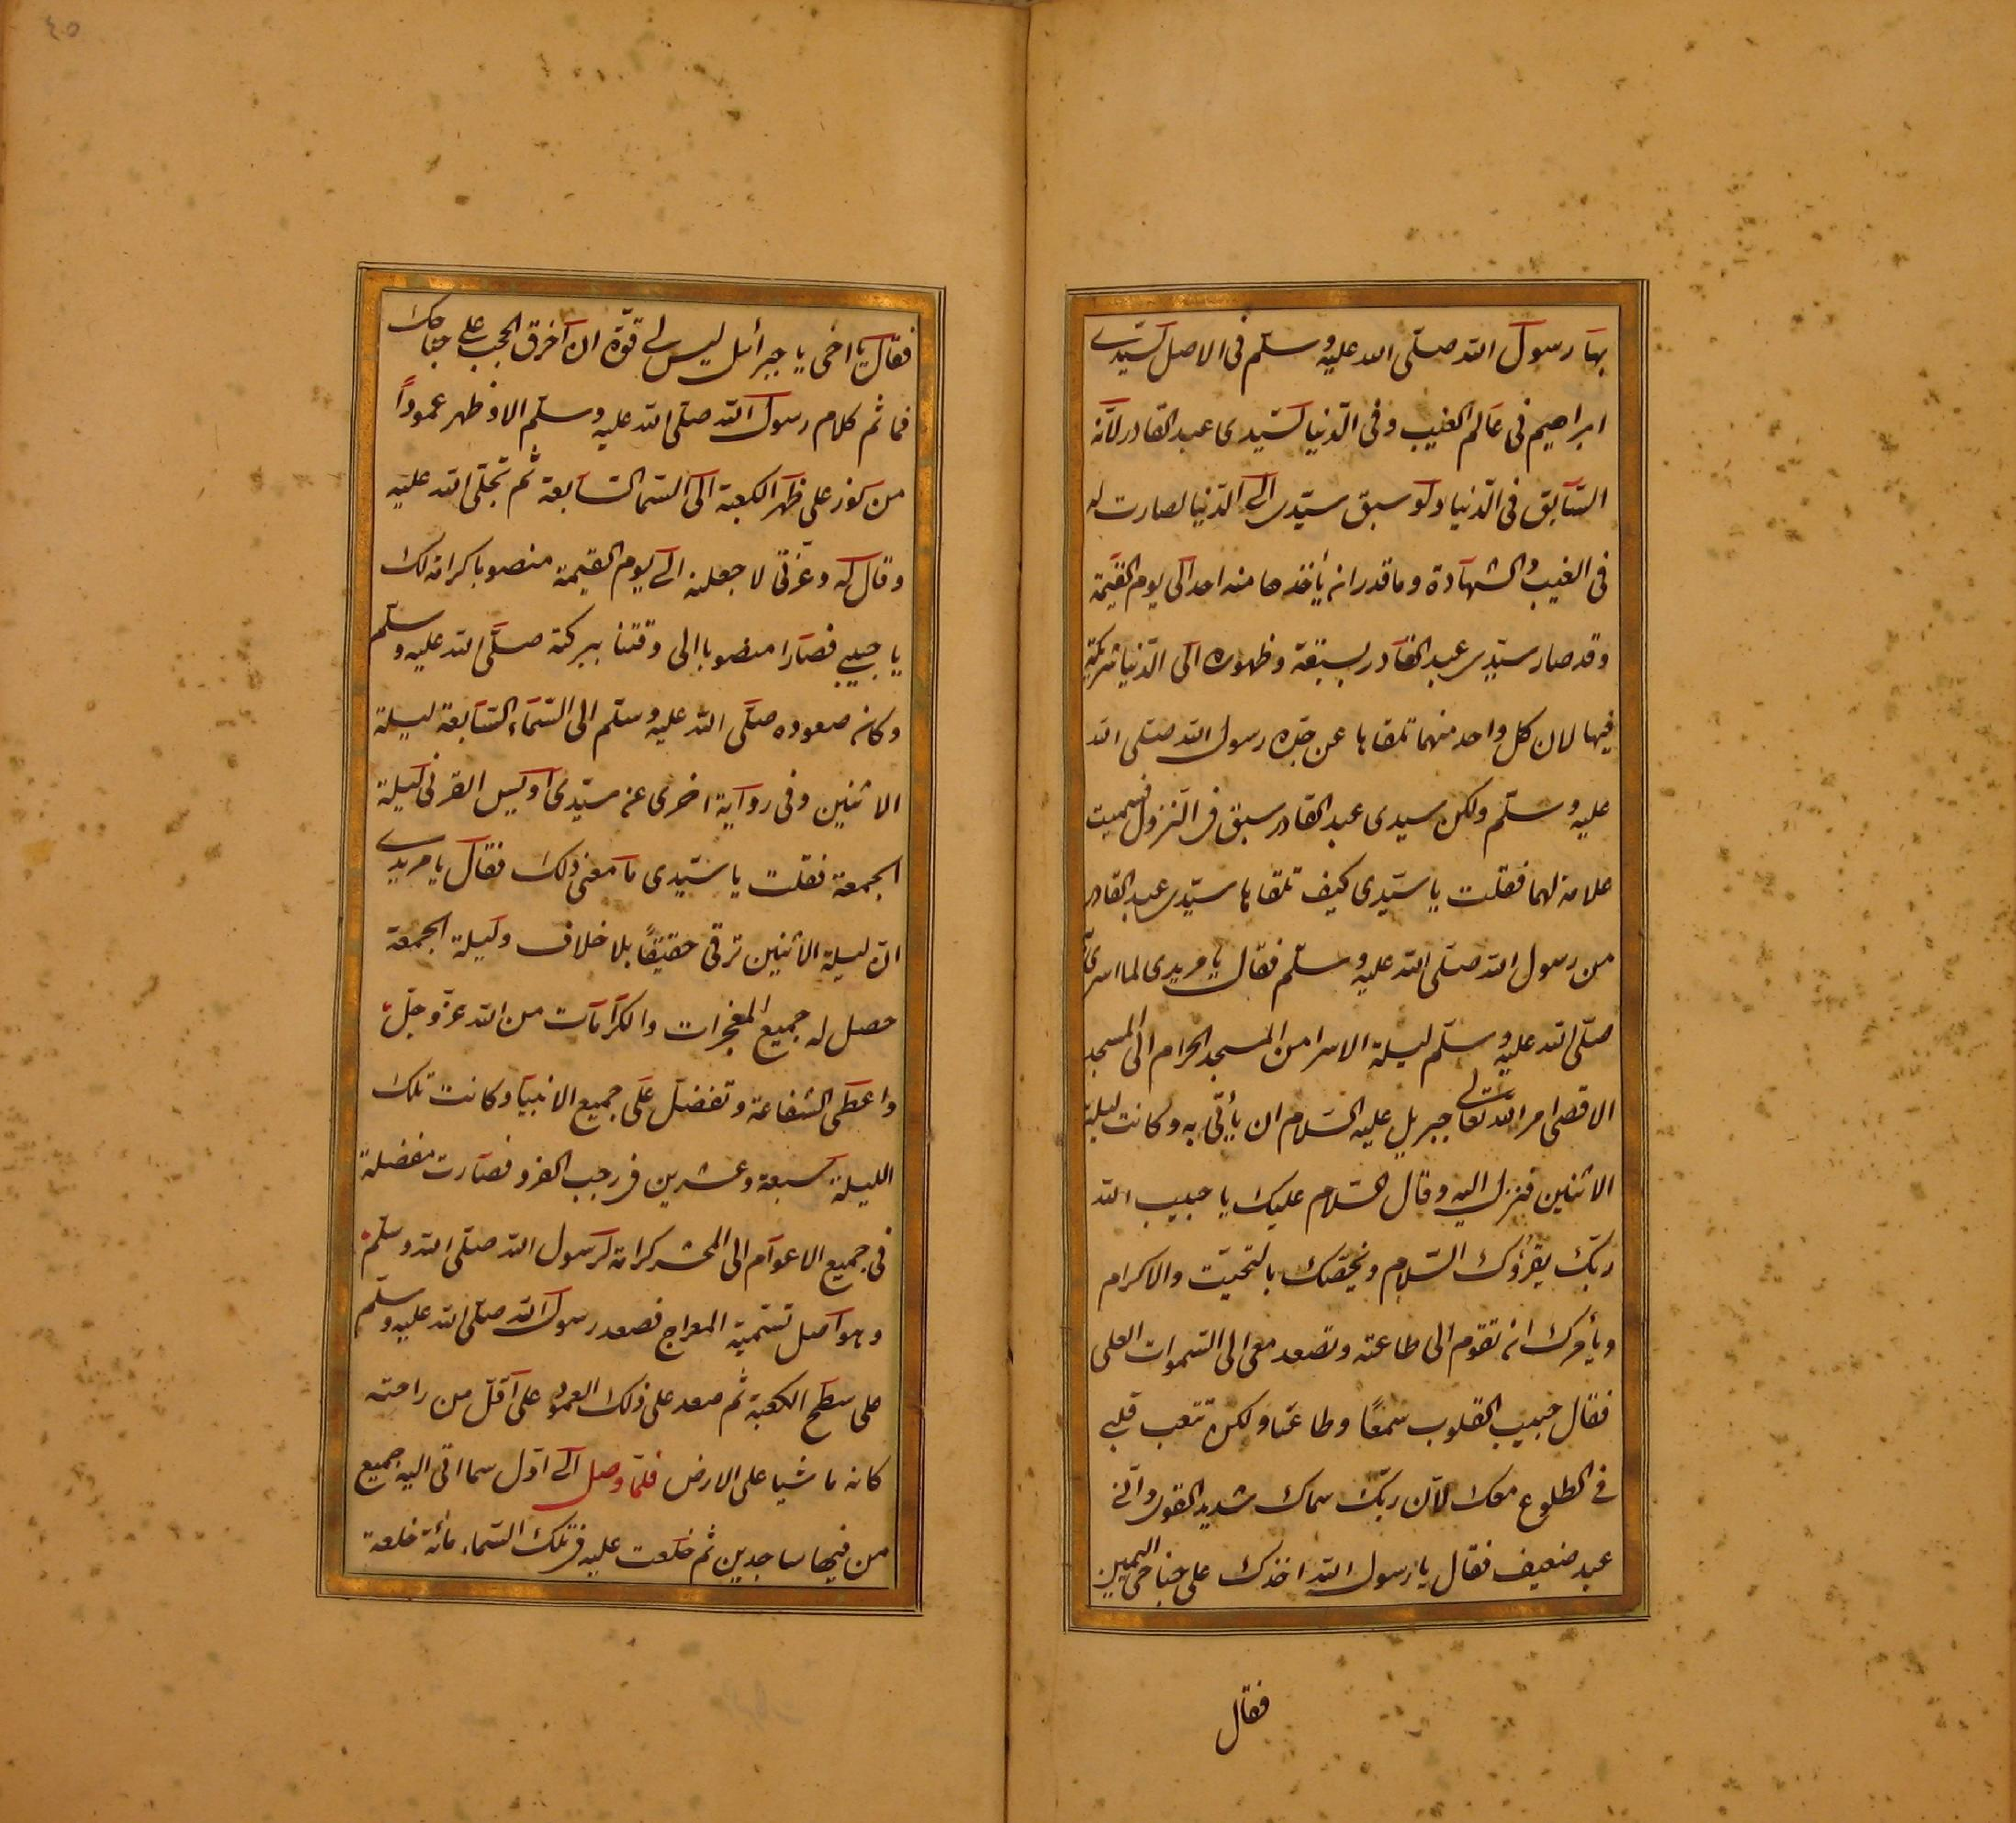 بها رسول الله صلّى الله عليه وسلّم فى الاصل لسيّدى
ابراهيم فى عالم الغيب وفى الدّنيا لسيّدى عبد القادر لانّه
السّابق فى الدّنيا ولو سبق سيّدى الى الدّنيا لصارت له
فى الغيب والشهادة وما قدر ان يأخذها منه احد الى يوم القيمة
وقد صار سيّدى عبد القادر بسبقة وظهوره الى الدّنيا شريكته
فيها لان كل واحد منهما تلقاها عن جدّه رسول الله صلّى الله
عليه وسلّم ولكن سيدى عبد القادر سبق فى النّزول فسميت
علامة لهما فقلت يا سيّدى كيف تلقاها سيّدى عبد القادر
من رسول الله صلّى الله عليه وسلّم فقال يا مريدى لما اسرى
صلّى الله عليه وسلّم ليلة الاسرا من المسجد الحرام الى المسجد
الاقصى امر الله تعالى جبريل عليه السّلام ان يأتى به وكانت ليلة
الاثنين فنزل اليه وقال السّلام عليك يا حبيب الله
ربّك يقرؤك السّلام ويخصّك بالتحيّت والاكرام
ويأمرك ان تقوم الى طاعته وتصعد معى الى السّموات العلى
فقال حبيب القلوب سمعًا وطاعتا ولكن تتعب قلبى
فى الطلوع معك لآن ربّك سماك شديد القوى وانّى
عبد ضعيف فقال يا رسول الله اخذك على جناحى اليمين
فقال
٤٥
فقال يا اخى يا جبرائل ليس لى قوّة ان اخرق الحجب على جناحك
فما ثم كلام رسول الله صلّى الله عليه وسلّم الا وظهر عمودًا
من نور على ظهر الكعبة الى السّما السّابعة ثم تجلّى الله عليه
وقال له وعزّتى لاجعلنه الى يوم القيمة منصوبا كرامة لك
يا حبيبى فصارا منصوبا الى وقتنا ببركته صلّى الله عليه وسلّم
وكان صعوده صلّى الله عليه وسلّم الى السّماء السّابعة ليلة
الاثنين وفى رواية اخرى عن سيّدى اويس القرنى ليلة
الجمعة فقلت يا سيّدى ما معنى ذلك فقال يا مريدى
انّ ليلة الاثنين ترقى حقيقًا بلا خلاف وليلة الجمعة
حصل له جميع المعجزات والكرامات من الله عزّ وجلّ
واعطى الشفاعة وتفضّل على جميع الانبيا وكانت تلك
الليلة سبعة وعشرين فى رجب الفرد فصارت مفضلة
فى جميع الاعوام الى المحشر كرامة لرسول الله صلّى الله وسلّم
وهو اصل تسمية المعراج فصعد رسول الله صلّى الله عليه وسلّم
على سطح الكعبة ثم صعد على ذلك العمود على اقلّ من راحته
كانه ماشيا على الارض فلمّا وصل الى اوّل سما اتى اليه جميع
من فيها ساجدين ثم خلعت عليه فى تلك السّماء مائة خلعة